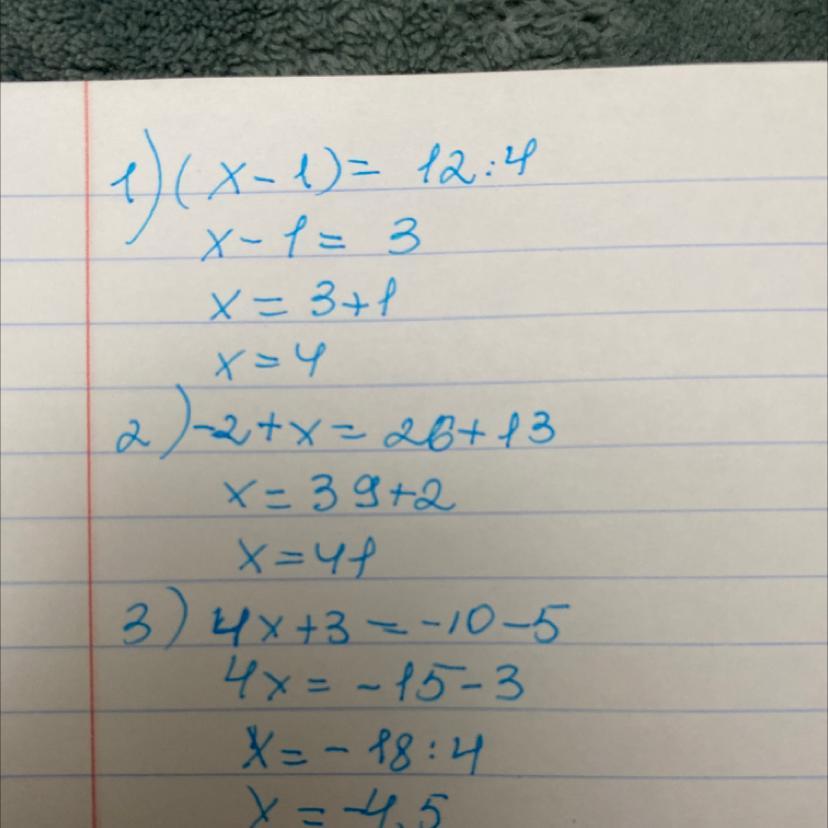 1) (x-1)= 12:4
x-1= 3
x= 3+1
x=4
2) -2+x= 26+13
x= 39+2
x=41
3) 4x+3=-10-5
4x= -15-3
x=-18:4
x=-4,5